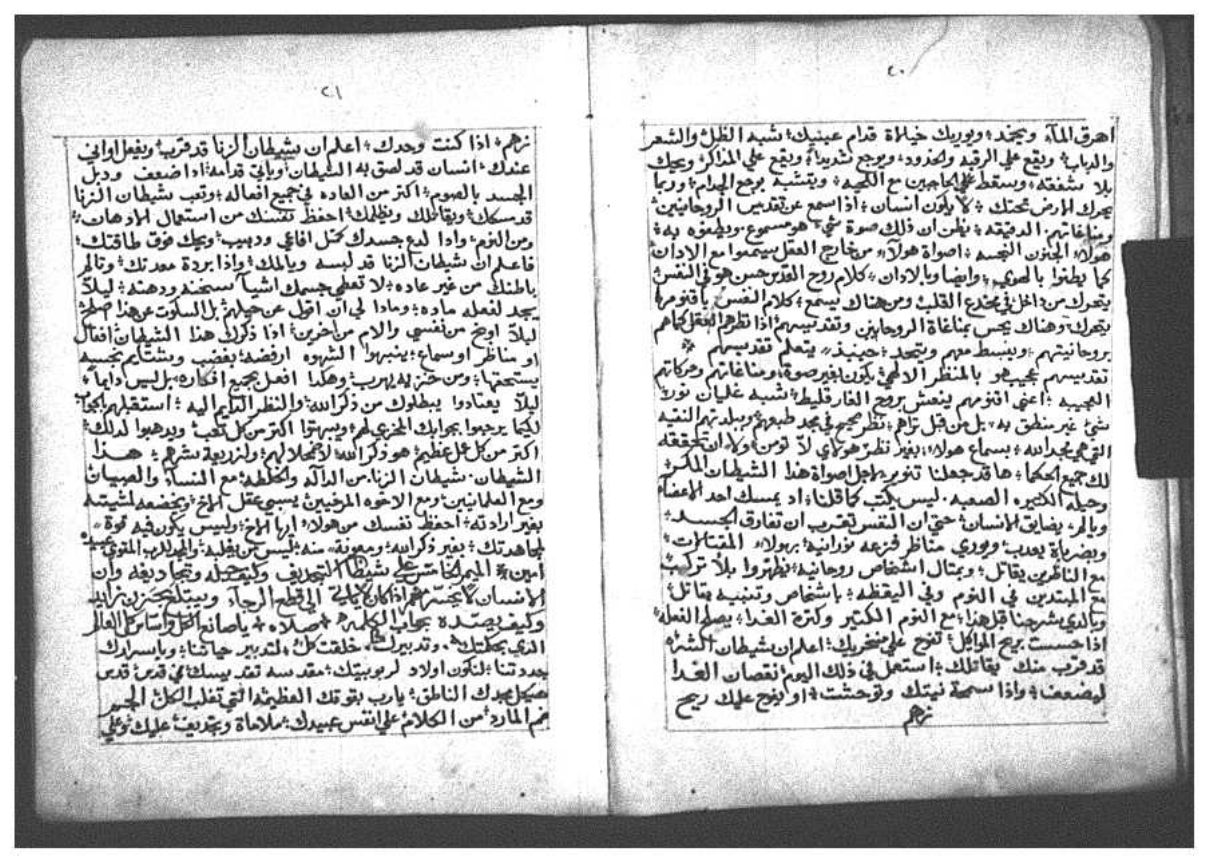 ٢٠
اهرق المآء ويجمد؛ ويوريك خيالاة قدام عينيك؛ شبه الظل والشعر
والدباب؛ ويقع علي الرقبه والخدود؛ ويوجع شديداً؛ ويقع علي المذاكر ويحك
بلا شفقه؛ ويسقط علي الحاجبين مع اللحيه؛ ويتشبه بوجع الجدام؛ وربما
يحرك الارض تحتك؛ كلا يكون انسان؛ اذا سمع عن تقديس الروحانيين؛
ومناغاتهم الدقيقه؛ يظن ان ذلك صوة شي هو مسموع ويطغوه به؛
هولاء الجنون النجسه؛ اصواة هولاء من خارج العقل يسمعوا مع الادان
كما يطغوا بالهوي؛ وايضا وبالادان؛ كلام روح القدس حس هو في النفس
يتحرك من داخل في مخدع القلب ومن هناك يسمع؛ كلام النفس باقنومها
يتحرك وهناك يحس بمناغاة الروحانيين وتقديسهم؛ اذا نظرهم العقل كما هم
بروحانيتهم؛ وينبسط معهم ويتحد؛ حينيذ يتعلم تقديسهم
تقديسهم عجيب هو بالمنظر الالهي؛ يكون بغير صوة؛ ومناغاتهم وحركاتهم
العجيبه؛ اعني اقنومهم ينعش بروح الفارقليط؛ شبه غليان نور؛
شي غير منطق به؛ بل من قبل نراهم؛ نظر عجيب في مجد طبعهم وببلدتهم النقيه
التي هي مجد الله؛ بسماع هولاء؛ بغير نظر هولاي لا تومن؛ ولا ان تحققه
لك جميع الحكما؛ ها قد جعلنا تنوير لاجل اصواة هذا الشيطان الماكر؛
وحيله الكثيره الصعبه. ليس يكتب كما قلنا؛ اد يمسك احد الاعضآء
وبالم يضايق الانسان؛ حتي ان النفس تقترب ان تفارق الجسد؛
وبضرباة يعدب؛ ويوري مناظر فزعه نورانيه؛ بهولاء المقتالات؛
مع الناظرين يقاتل؛ وبمثال اشخاص روحانيه؛ يظهروا بلا تركيب
مع المبتدين في النوم وفي اليقظه؛ باشخاص وتنبيه يقاتل؛
وبالذي شرحنا قبل هذا؛ مع النوم الكتير وكثرة الغدا؛ يصلح الفعله
اذا حسست بريح المواكل؛ تفوح علي منخريك؛ اعلم ان شيطان الشره
قد قرب منك يقاتلك؛ استعمل في ذلك اليوم؛ نقصان الغدا
ليضعف؛ واذا سمجة نيتك وتوحشت؛ او يفوح عليك ريح
زهم
٢١
زهم؛ اذا كنت وحدك؛ اعلم ان شيطان الزنا قد قرب؛ ويفعل اواني
عندك؛ انسان قد لصق به الشيطان؛ وياتي قدامه؛ اذا ضعف ودبل
الجسد بالصوم؛ اكتر من العاده في جميع افعاله؛ وتعب شيطان الزنا
قد مسكك؛ ويقاتلك ويظلمك؛ احفظ نفسك من استعمال الادهان؛
ومن النوم؛ واذا لدع جسدك كمثل افاعي ودبيب؛ ويحك فوق طاقتك؛
فاعلم ان شيطان الزنا قد لبسه ويالمك؛ واذا بردة معدتك؛ وتالم
باطنك من غير عاده؛ لا تعطي جسمك اشيآ سخنه ودهنه؛ ليلا
يجد لفعله ماده؛ وماذا لي ان اقول عن حيلهم؛ بل السكوت عن هذا صالح؛
ليلا اوبخ من نفسي والام من اخرين؛ اذا ذكرك هذا الشيطان؛ افعال
او مناظر او سماع؛ ينبهوا الشهوه ارفضه؛ بغضب وبشتايم نجسه
يستحقها؛ ومن خزيه يهرب؛ وهكذا افعل بجميع افكاره؛ بل ليس دايماً؛
ليلا يعتادوا يبطلوك من ذكر الله؛ والنظر الدايم اليه؛ استقبلهم
لكيما يرجموا بجوابك المخزي لهم؛ ويبهتوا اكتر من كل تعب؛ ويدهبوا لذلك؛
اكتر من كل عمل عظيم؛ هو ذكر الله؛ لاضمحلالهم؛ ولذريعة شرهم؛ هذا
الشيطان. شيطان الزنا. من الدآله والخلطه؛ مع النسآء والصبيان
ومع العلمانيين؛ ومع الاخوه المرخيين؛ يسبي عقل الاخ؛ ويخضعه لمشيته
بغير ارادته؛ احفظ نفسك من هولاء ايها الاخ؛ وليس يكون فيه قوة
لمجاهدتك؛ بغير ذكر الله؛ ومعونة منه؛ ليس من يغلبه؛ والمجد للرب المقوي عبيده
امين؛ الميمر الخامس علي شيطان التجديف وكيف حيله وتجاديفه وان
الانسان لا يخسر منهم اذا كان لا يميل الي قطع الرجآء ويبتلع بحزن زايد
وكيف يصنده بجواب الكلمه؛ صلاه؛ يا صانع الكل واساس العالم
الذي بحكمتك؛ وتدبيرك؛ خلقت كل؛ لتدبير حياتنا؛ وباسرارك
جددتنا؛ لنكون اولاد لربوبيتك؛ مقدسه تقديسك في قدس قدس
هيكل مجدك الناطق؛ يارب بقوتك العظيمه التي تغلب الكل؛
فم المارد من الكلام علي انفس عبيدك؛ ملاماة وتجديف؛ عليك وعلي